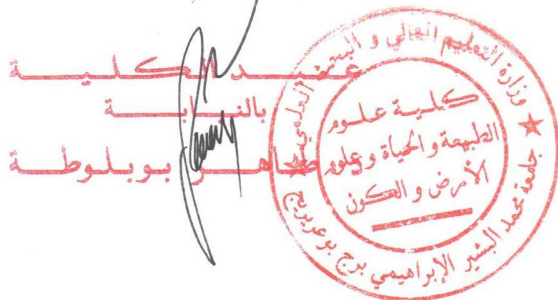 عميد الكلية
بالنيابة
طاهر بوبلوطة
وزارة التعليم العالي و البحث العلمي
كلية علوم
الطبيعة و الحياة و علوم
الأرض و الكون
جامعة محمد البشير الإبراهيمي برج بوعريريج